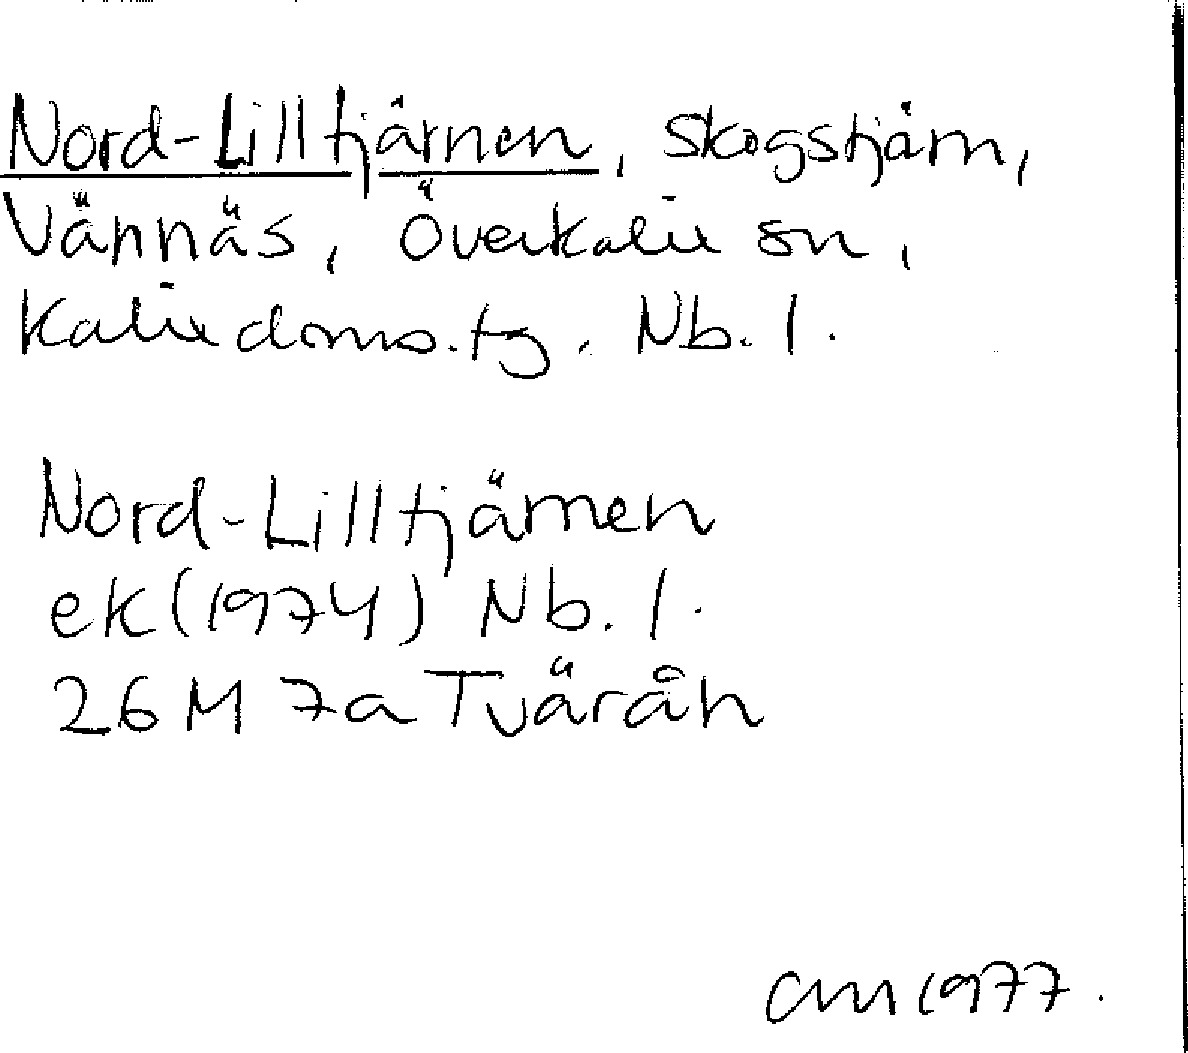 Nord-Lilltjärnen, skogstjärn,
Vännäs, Överkalix sn,
Kalix doms.tg. Nb. l.
Nord-Lilltjärnen
ek (1974) Nb. l.
26 M 7a Tvärån
CM 1977.